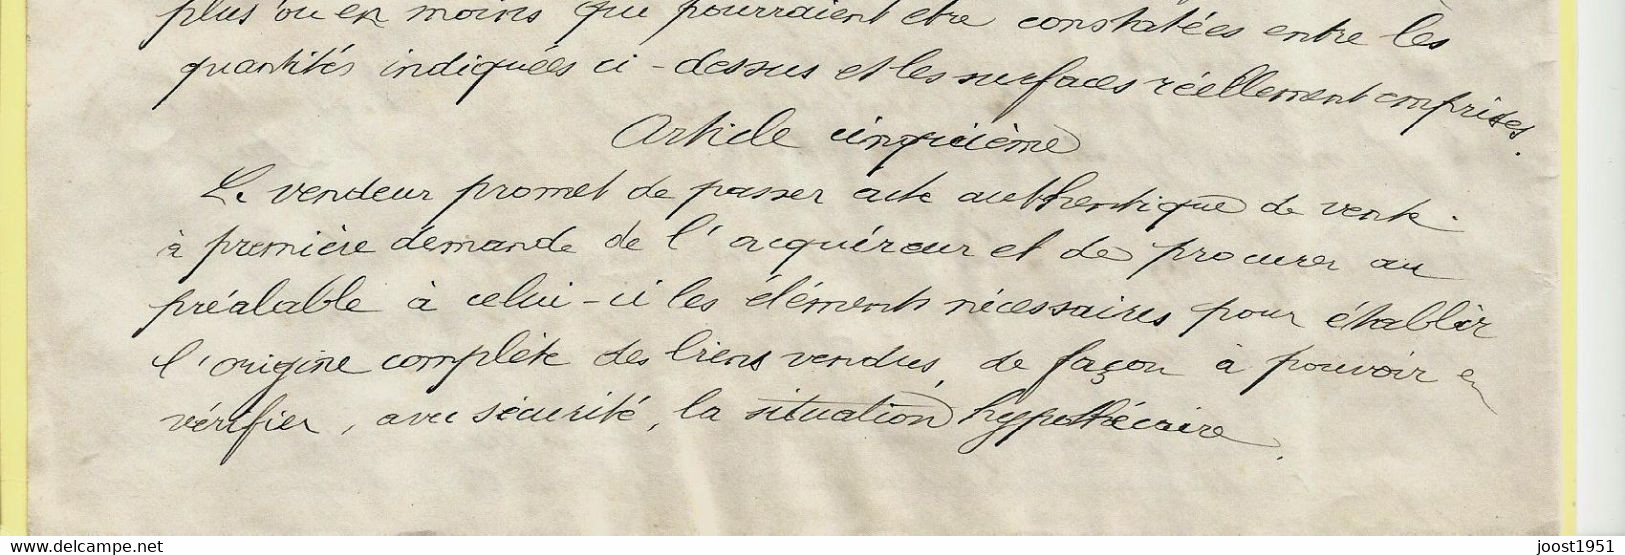 plus ou en moins qui pourraient être constatées entre les
quantités indiquées ci-dessus et les surfaces réellement emprises.
Article cinquième
Le vendeur promet de passer acte authentique de vente
à première demande de l'acquéreur et de procurer au
préalable à celui-ci les éléments nécessaires pour établir
l'origine complète des biens vendus, de façon à pouvoir en
vérifier, avec sécurité, la situation hypothécaire.
www.delcampe.net
joost1951